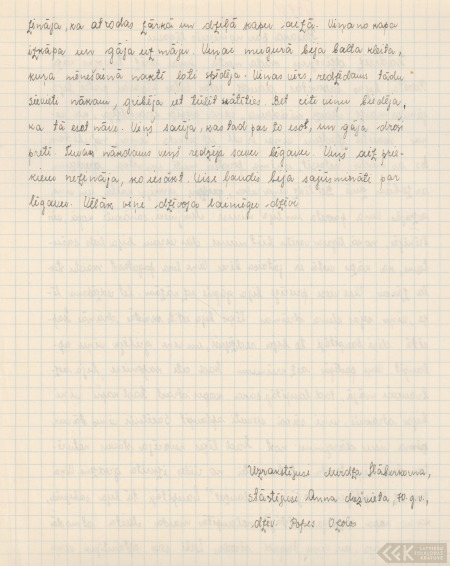 zināja, ka atrodas zārkā un dziļā kapu aizā. Viņa no kapa
izkāpa un gāja uz māju. Viņai mugurā bija balta kleita,
kura mēnešainā naktī ļoti spīdēja. Viņas vīrs, redzēdams tādu
sievieti nākam, gribēja iet tūliņ skatīties. Bet citi viņu biedēja,
ka tā esot nāve. Viņš sacīja, kas tad par to esot, un gāja droši
preti. Tuvāk nākdams viņš redzēja savu līgavu. Viņš aiz prie-
kiem nezināja, ko iesākt. Visi ļaudis bija sajūsmināti par
līgavu. Vēlāk viņi dzīvoja laimīgu dzīvi
Uzrakstījusi Mirdza
stāstījusi Anna 70. g.v.,
dzīv. Popes Ozolos
LATVIEŠU
FOLKLORAS
KRĀTUVE